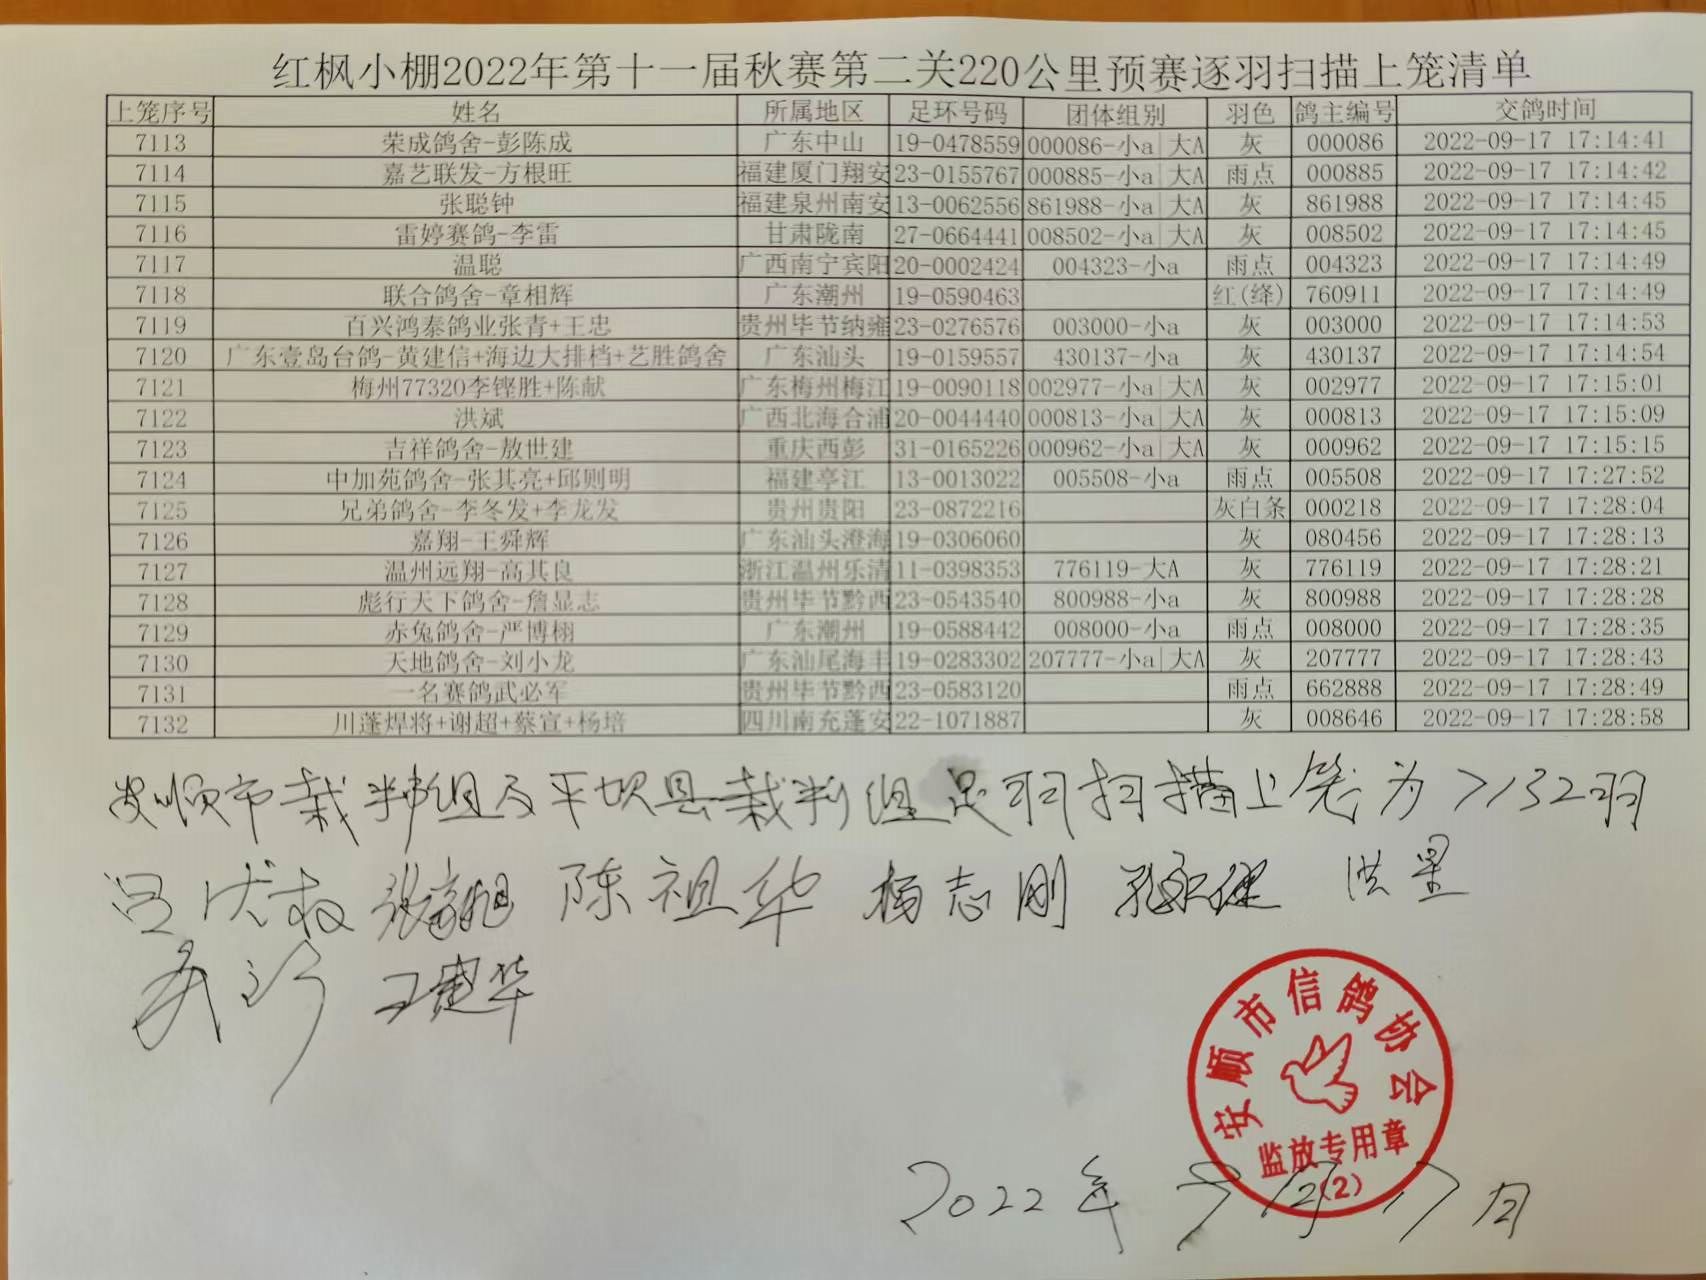 红枫小棚2022年第十一届秋赛第二关220公里预赛逐羽扫描上笼清单
上笼序号 姓名 所属地区 足环号码 团体组别 羽色 鸽主编号 交鸽时间
7113 荣成鸽舍-彭陈成 广东中山 19-0478559 000086-小a|大A 灰 000086 2022-09-17 17:14:41
7114 嘉艺联发-方根旺 福建厦门翔安 23-0155767 000885-小a|大A 雨点 000885 2022-09-17 17:14:42
7115 张聪钟 福建泉州南安 13-0062556 861988-小a|大A 灰 861988 2022-09-17 17:14:45
7116 雷婷赛鸽-李雷 甘肃陇南 27-0664441 008502-小a|大A 灰 008502 2022-09-17 17:14:45
7117 温聪 广西南宁宾阳 20-0002424 004323-小a 雨点 004323 2022-09-17 17:14:49
7118 联合鸽舍-章相辉 广东潮州 19-0590463 红(绛) 760911 2022-09-17 17:14:49
7119 百兴鸿泰鸽业张青+王忠 贵州毕节纳雍 23-0276576 003000-小a 灰 003000 2022-09-17 17:14:53
7120 广东壹岛台鸽-黄建信+海边大排档+艺胜鸽舍 广东汕头 19-0159557 430137-小a 灰 430137 2022-09-17 17:14:54
7121 梅州77320李铿胜+陈献 广东梅州梅江 19-0090118 002977-小a|大A 灰 002977 2022-09-17 17:15:01
7122 洪斌 广西北海合浦 20-0044440 000813-小a|大A 灰 000813 2022-09-17 17:15:09
7123 吉祥鸽舍-敖世建 重庆西彭 31-0165226 000962-小a|大A 灰 000962 2022-09-17 17:15:15
7124 中加苑鸽舍-张其亮+邱则明 福建亭江 13-0013022 005508-小a 雨点 005508 2022-09-17 17:27:52
7125 兄弟鸽舍-李冬发+李龙发 贵州贵阳 23-0872216 灰白条 000218 2022-09-17 17:28:04
7126 嘉翔-王舜辉 广东汕头澄海 19-0306060 灰 080456 2022-09-17 17:28:13
7127 温州远翔-高其良 浙江温州乐清 11-0398353 776119-大A 灰 776119 2022-09-17 17:28:21
7128 彪行天下鸽舍-詹显志 贵州毕节黔西 23-0543540 800988-小a 灰 800988 2022-09-17 17:28:28
7129 赤兔鸽舍-严博栩 广东潮州 19-0588442 008000-小a 雨点 008000 2022-09-17 17:28:35
7130 天地鸽舍-刘小龙 广东汕尾海丰 19-0283302 207777-小a|大A 灰 207777 2022-09-17 17:28:43
7131 一名赛鸽武必军 贵州毕节黔西 23-0583120 雨点 662888 2022-09-17 17:28:49
7132 川蓬焊将+谢超+蔡宣+杨培 四川南充蓬安 22-1071887 灰 008646 2022-09-17 17:28:58
安顺市裁判组及平坝县裁判组逐羽扫描上笼为7132羽
陈祖华 杨志刚 洪星
王建华
安顺市信鸽协会
监放专用章
(2)
2022年9月17日